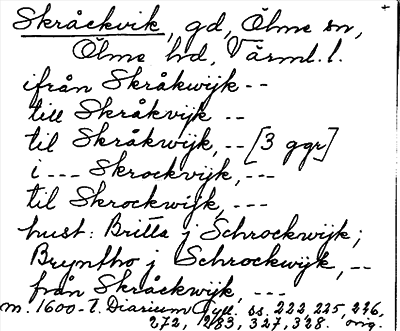 Skråckvik, gd, Ölme sn,
Ölme hd, Värml. l.
ifrån Skråkwijk --
till Skråkvijk --
til Skråkwijk, -- [3 ggr]
i --- Skrockvijk, ---
til Skrockwijk, ---
hust: Britta j Schrockwijk;
Bryntho j Schrockwijk, --
från Skråckwijk, ---
m. 1600-t. Diarium Gyll. ss. 222, 225, 226,
272, 283, 327, 328. orig.